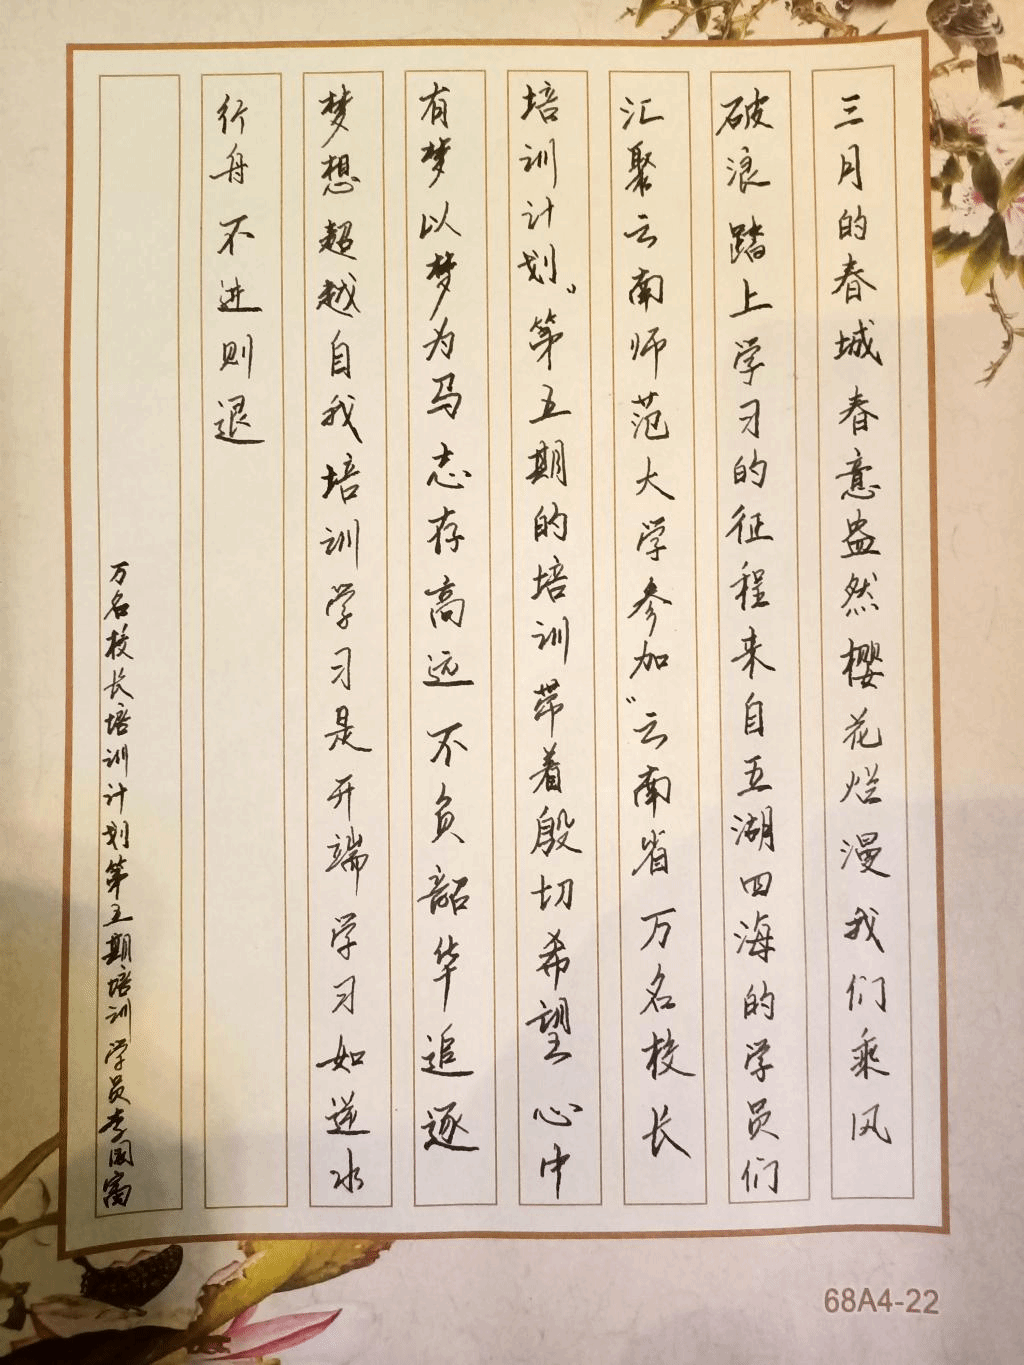 三月的春城春意盎然樱花烂漫我们乘风
破浪踏上学习的征程来自五湖四海的学员们
汇聚云南师范大学参加"云南省万名校长
培训计划"第五期的培训带着殷切希望心中
有梦以梦为马志存高远不负韶华追逐
梦想超越自我培训学习是开端学习如逆水
行舟不进则退
万名校长培训计划第五期培训学员李国富
68A4-22